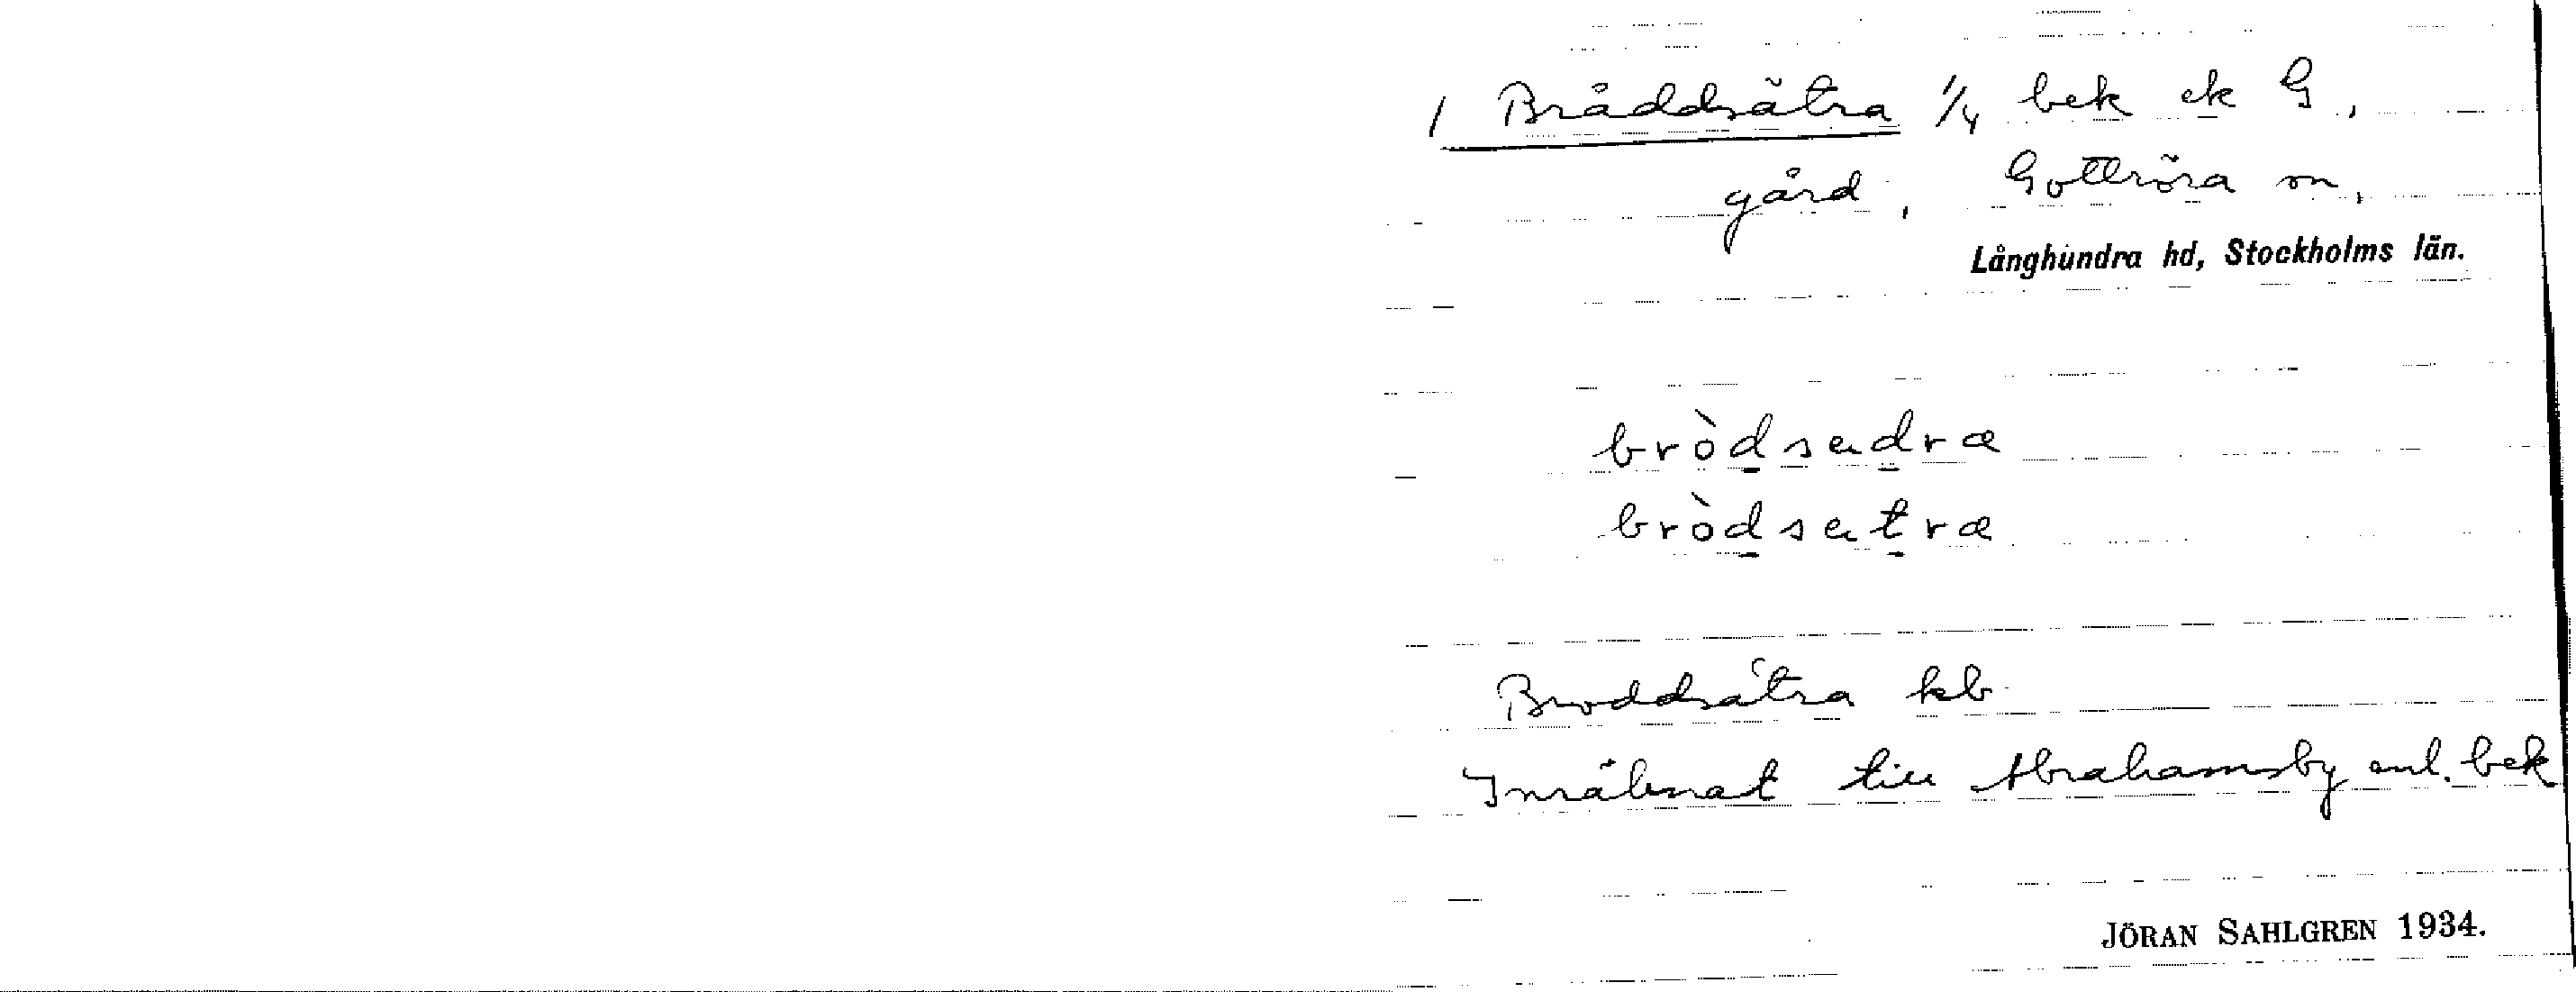 1 Bråddsätra 1/4 bek ek G,
gård, Gottröra sn,
Långhundra hd, Stockholms län.
bròdsadra
bròdsatra
Broddsätra kb
Inräknat till Abrahamsby enl. bek
JÖRAN SAHLGREN 1934.